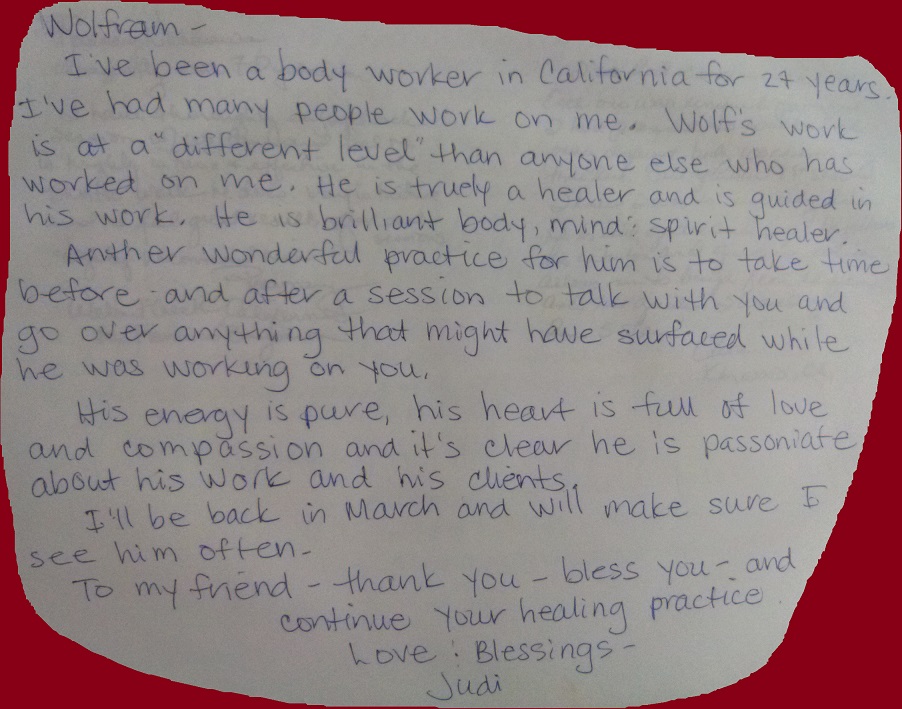 Wolfram -
I've been a body worker in California for 27 years.
I've had many people work on me. Wolf's work
is at a "different level" than anyone else who has
worked on me. He is truely a healer and is guided in
his work. He is brilliant body, mind : spirit healer.
Anther wonderful practice for him is to take time
before and after a session to talk with you and
go over anything that might have surfaced while
he was working on you.
His energy is pure, his heart is full of love
and compassion and it's clear he is passoniate
about his work and his clients.
I'll be back in March and will make sure I
see him often -
To my friend - thank you - bless you - and
continue your healing practice.
Love : Blessings -
Judi